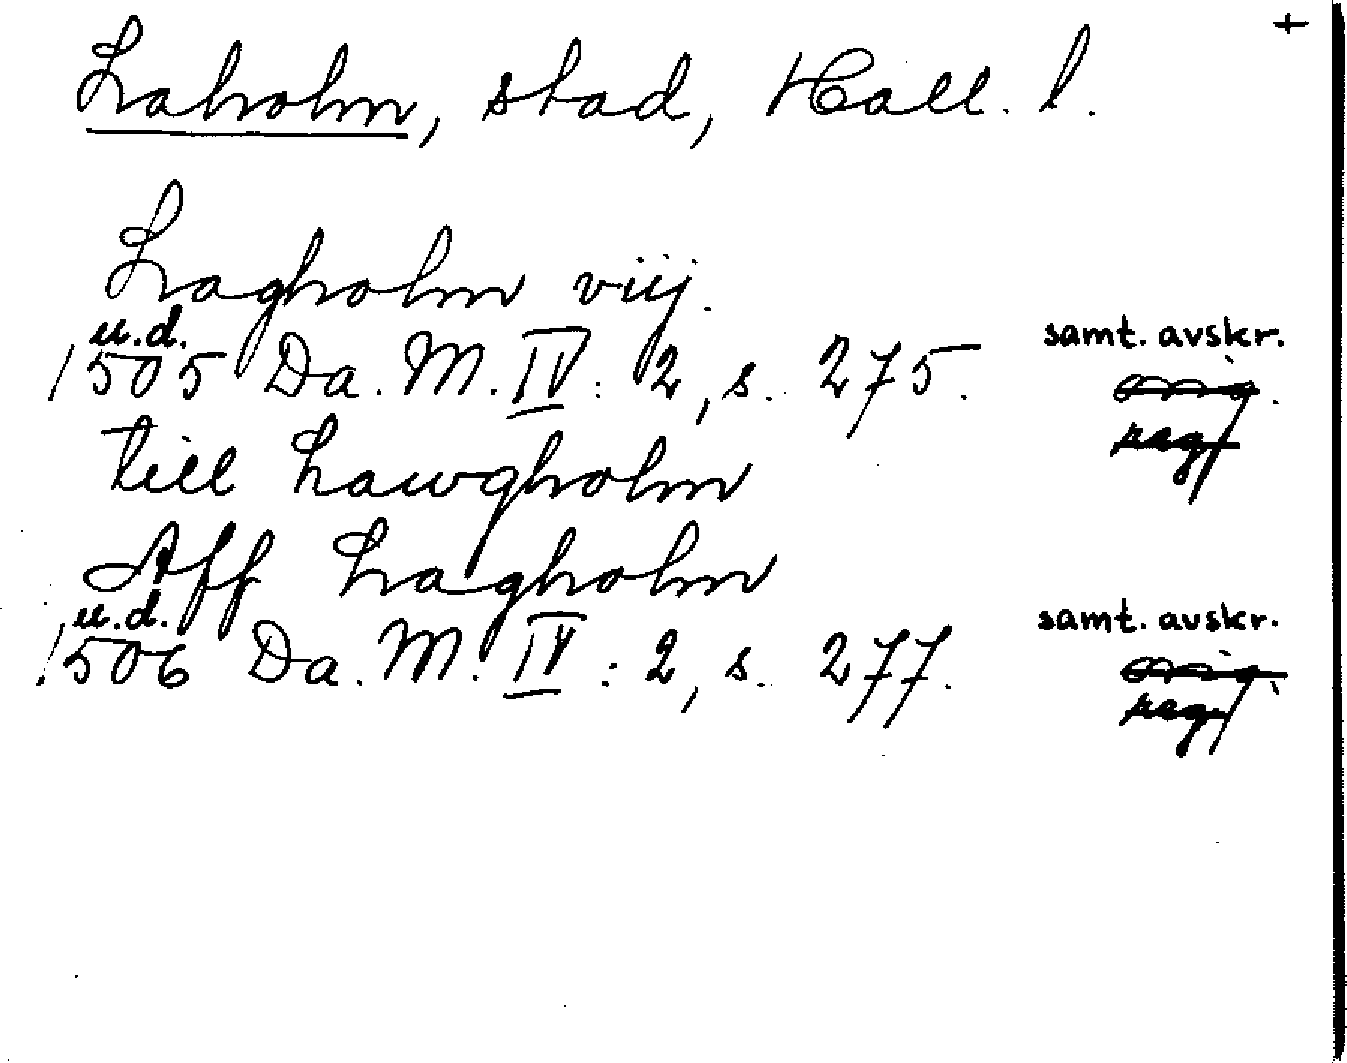 +
Laholm, stad, Hall. l.
Lagholm viij.
u.d.
1505 Da. M. IV: 2, s. 275. samt. avskr.
orig.
reg
till Lawgholm
Aff Lagholm
u.d.
1506 Da. M. IV: 2, s. 277. samt. avskr.
orig.
reg